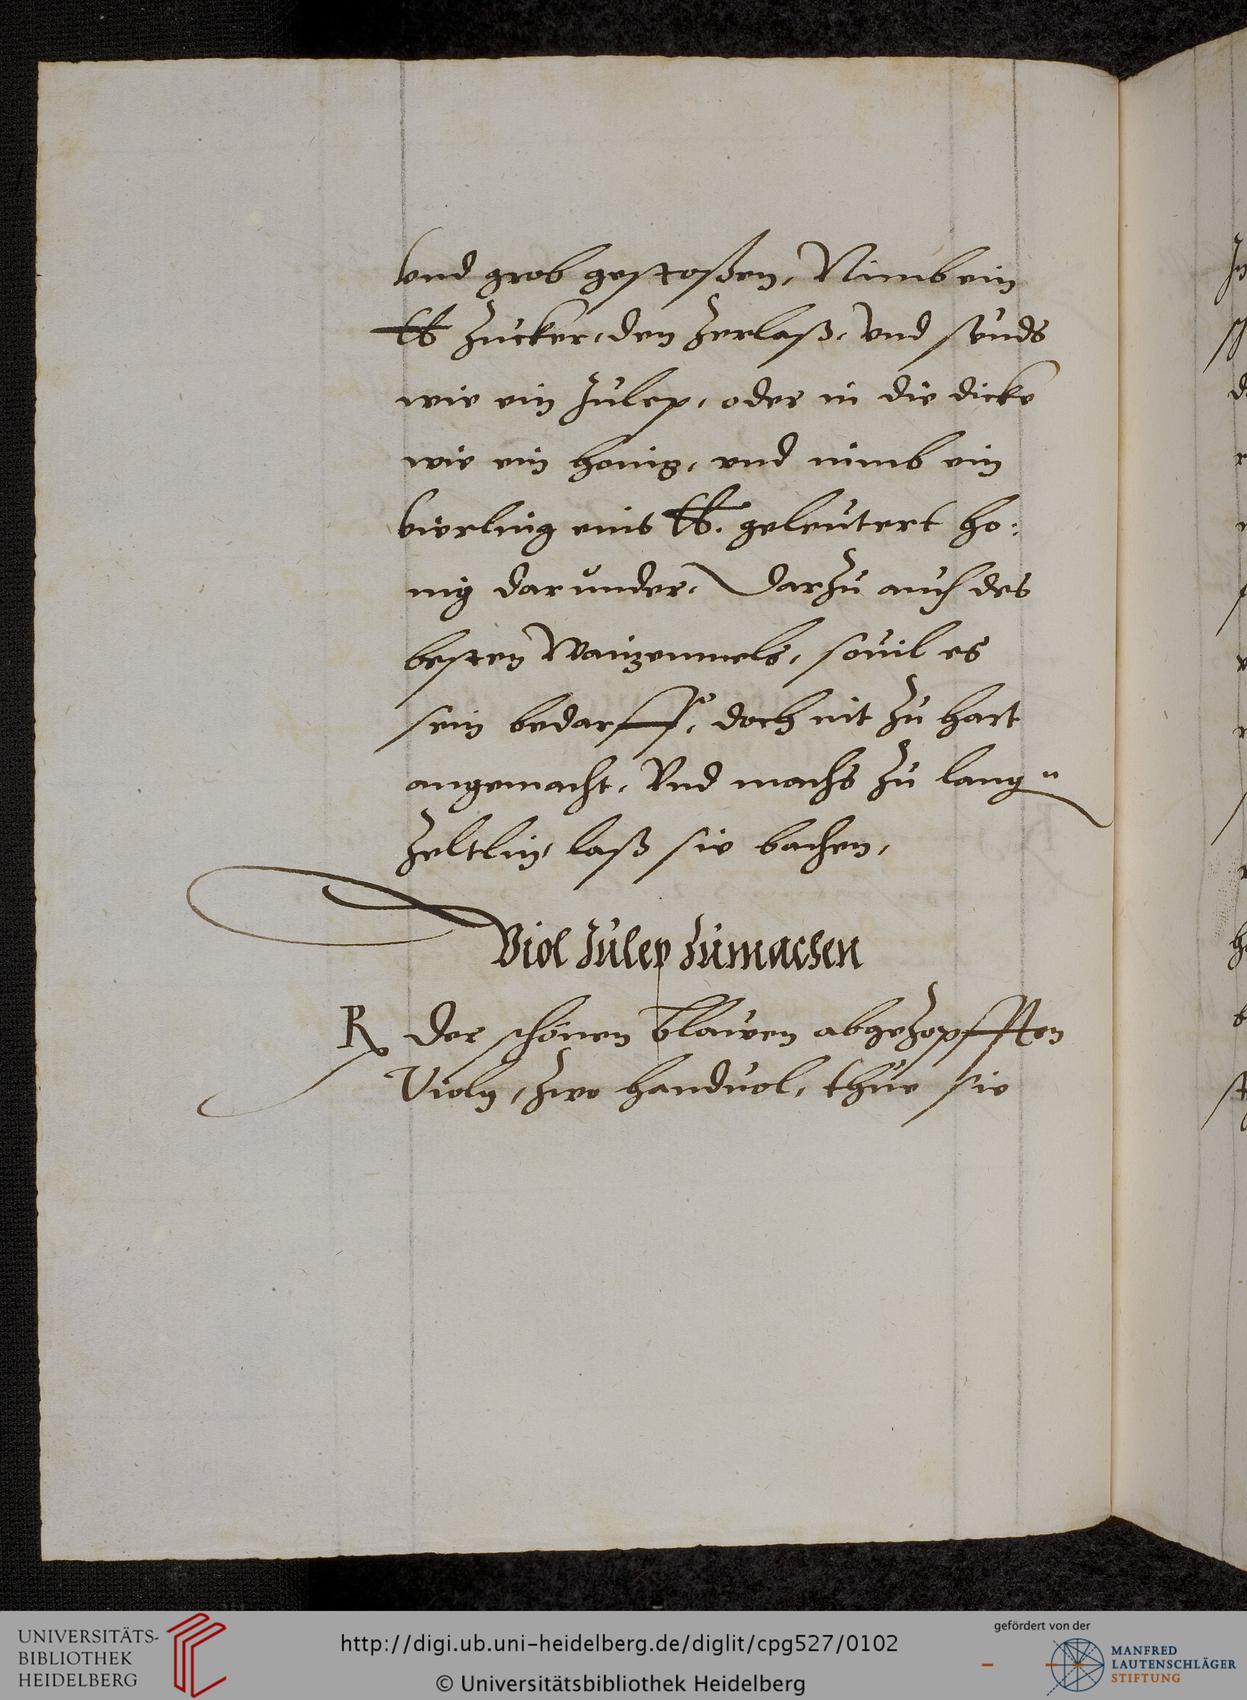 vnd grob gestoßen, Nimb ein
℔ Zucker, den Zerlaß, vnd seuds
wie ein Julep, oder in die dicke
wie ein honig, vnd nimb ein
vierling eins ℔. geleutert ho:
nig darunder, Darzu auch des
besten Waizenmels, souil es
sein bedarff, doch nit zu hart
angemacht, Vnd machs zu lang
Zeltlin, laß sie bachen,
Viol Julep zumachen
℞ Der schönen blawen abgezopfften
Violn, zwo handuol, thue sie
UNIVERSITÄTS-
BIBLIOTHEK
HEIDELBERG
http://digi.ub.uni-heidelberg.de/diglit/cpg527/0102
© Universitätsbibliothek Heidelberg
gefördert von der
MANFRED
LAUTENSCHLÄGER
STIFTUNG